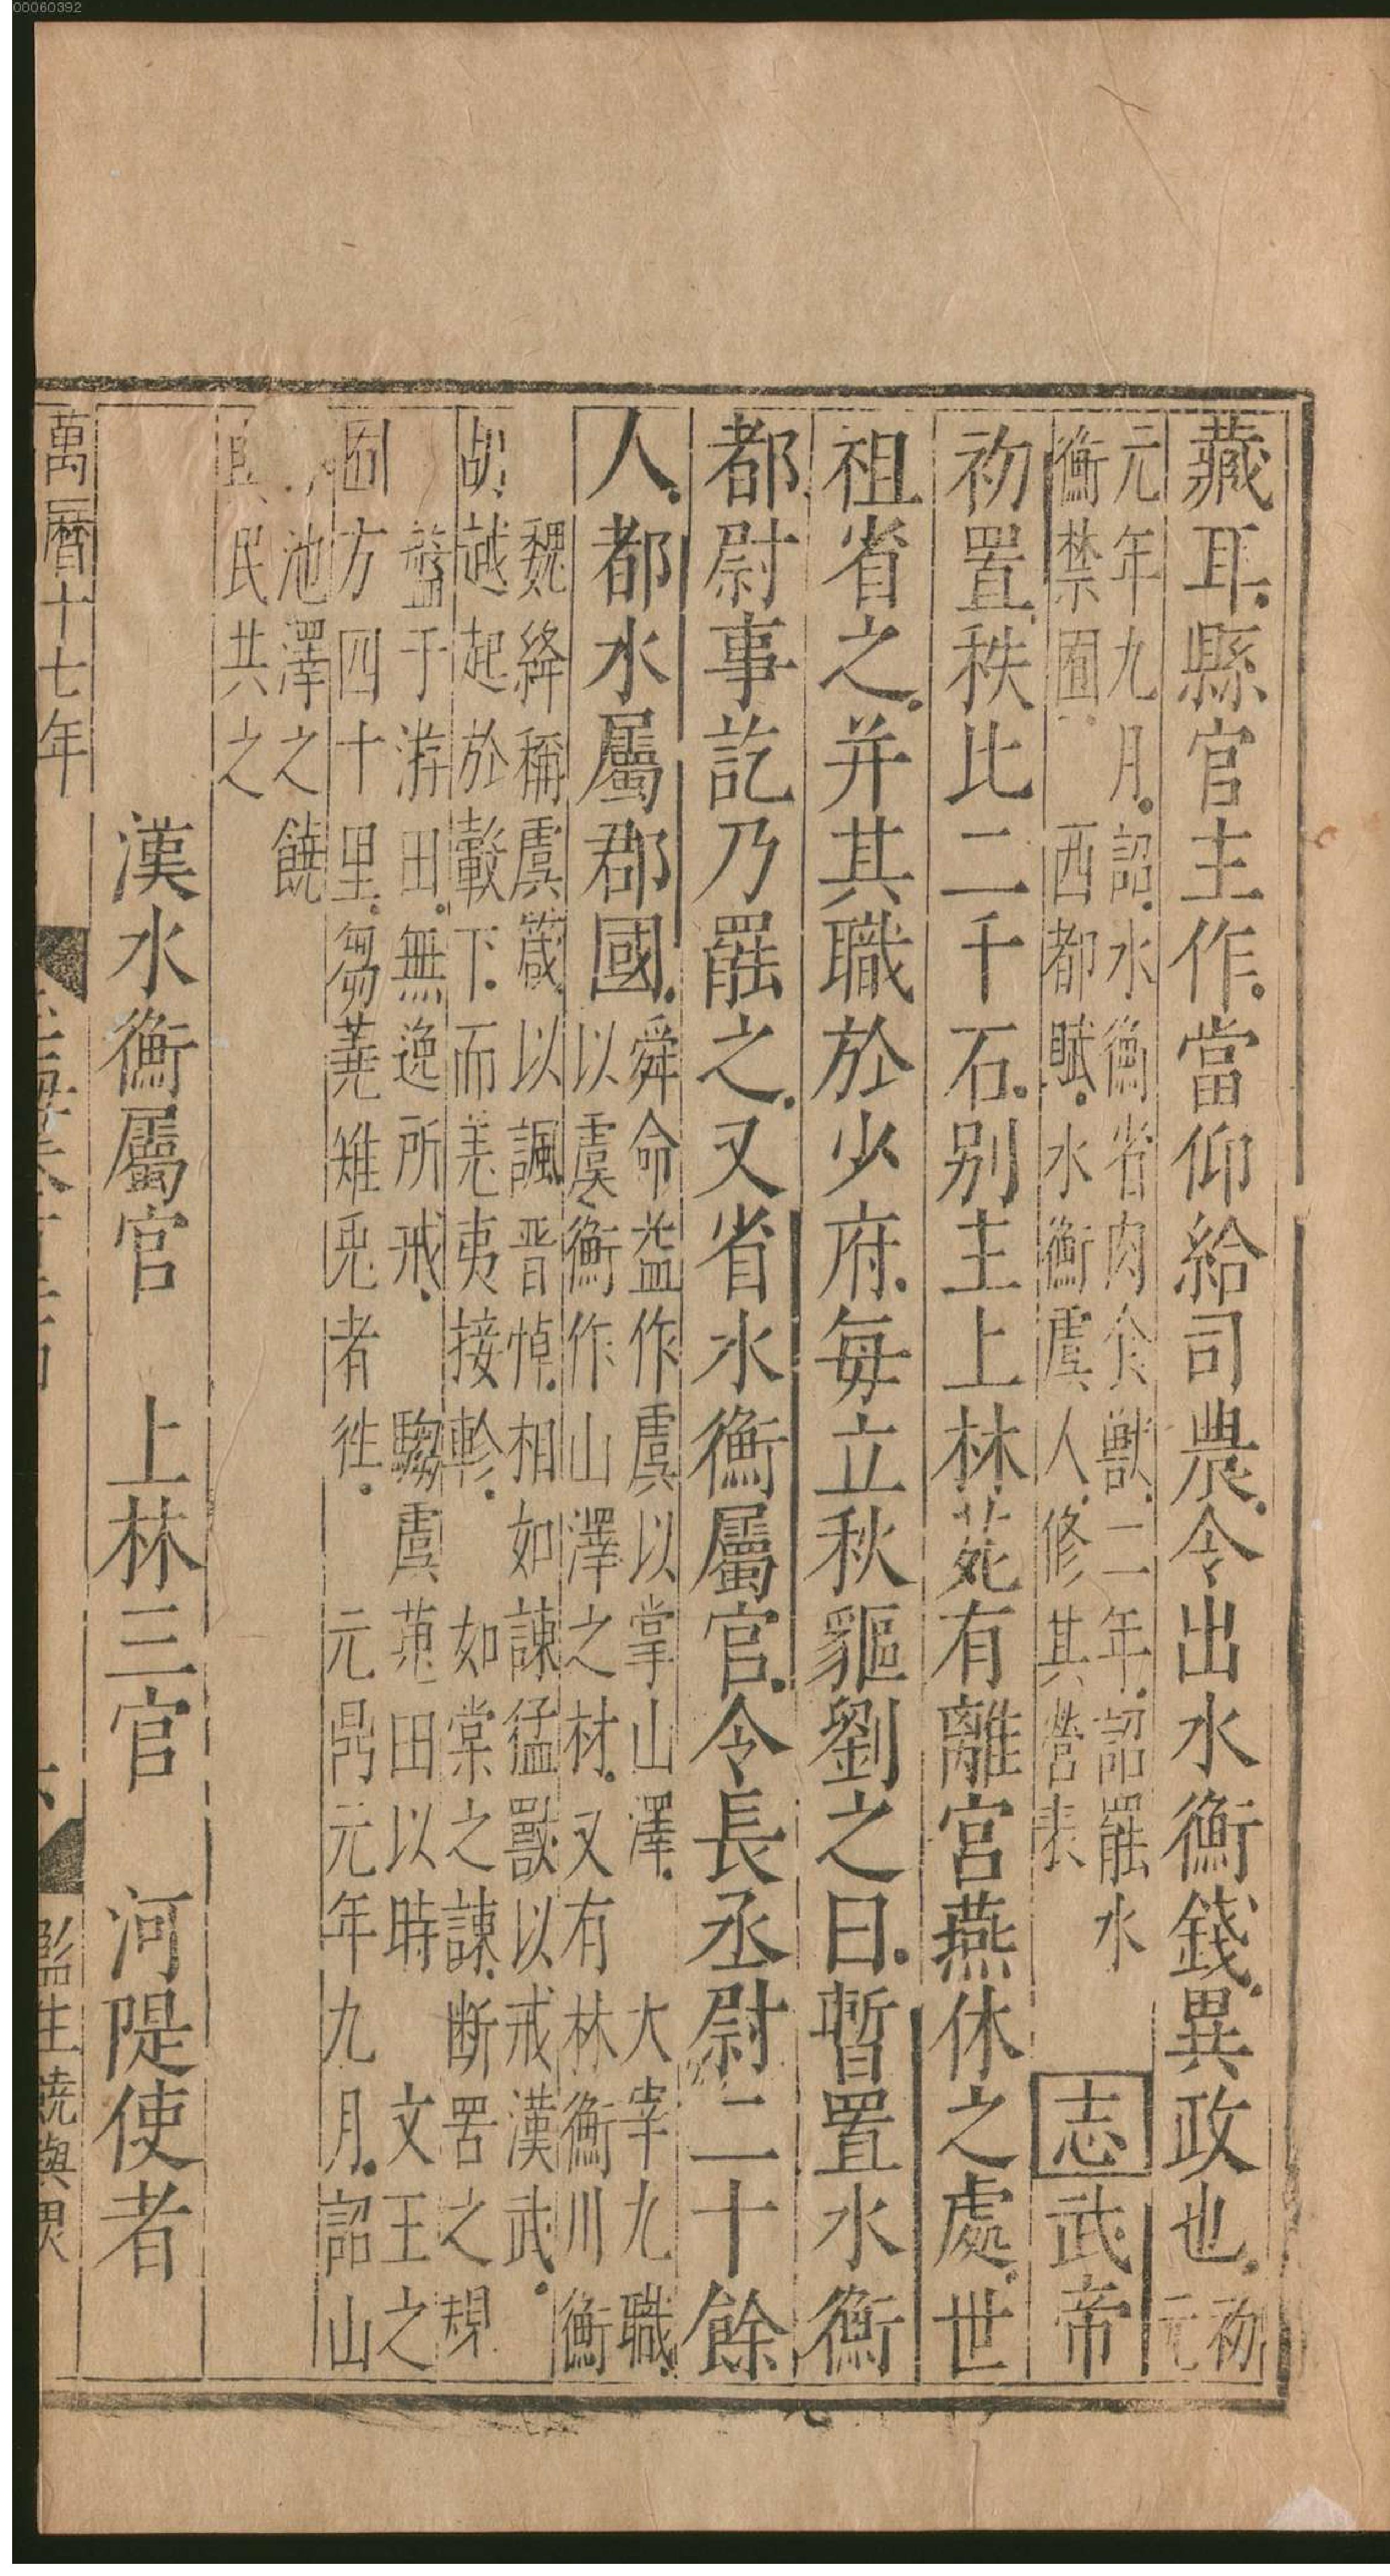 00060392
藏耳縣官主作當仰給司農令出水衡錢異政也初
元
元年九月詔水衡省肉食獸二年詔罷水
衡禁囿 西都賦水衡虞人修其營表
志武帝
初置秩比二千石别主上林苑有離宮燕休之處世
祖省之并其職於少府每立秋貙劉之日暫置水衡
都尉事訖乃罷之又省水衡屬官令長丞尉二十餘
人都水屬郡國
舜命益作虞以掌山澤 大宰九職
以虞衡作山澤之材又有林衡川衡
魏絳稱虞箴以諷晋悼相如諫猛獸以戒漢武
胡越起於轂下而羌夷接軫 如棠之諫断罟之規
盤于游田無逸所戒 騶虞苑田以時 文王之
囿方四十里芻蕘雉兎者徃 元鼎元年九月詔山
池澤之饒
與民共之
漢水衡屬官 上林三官 河隄使者
萬曆十七年
監生